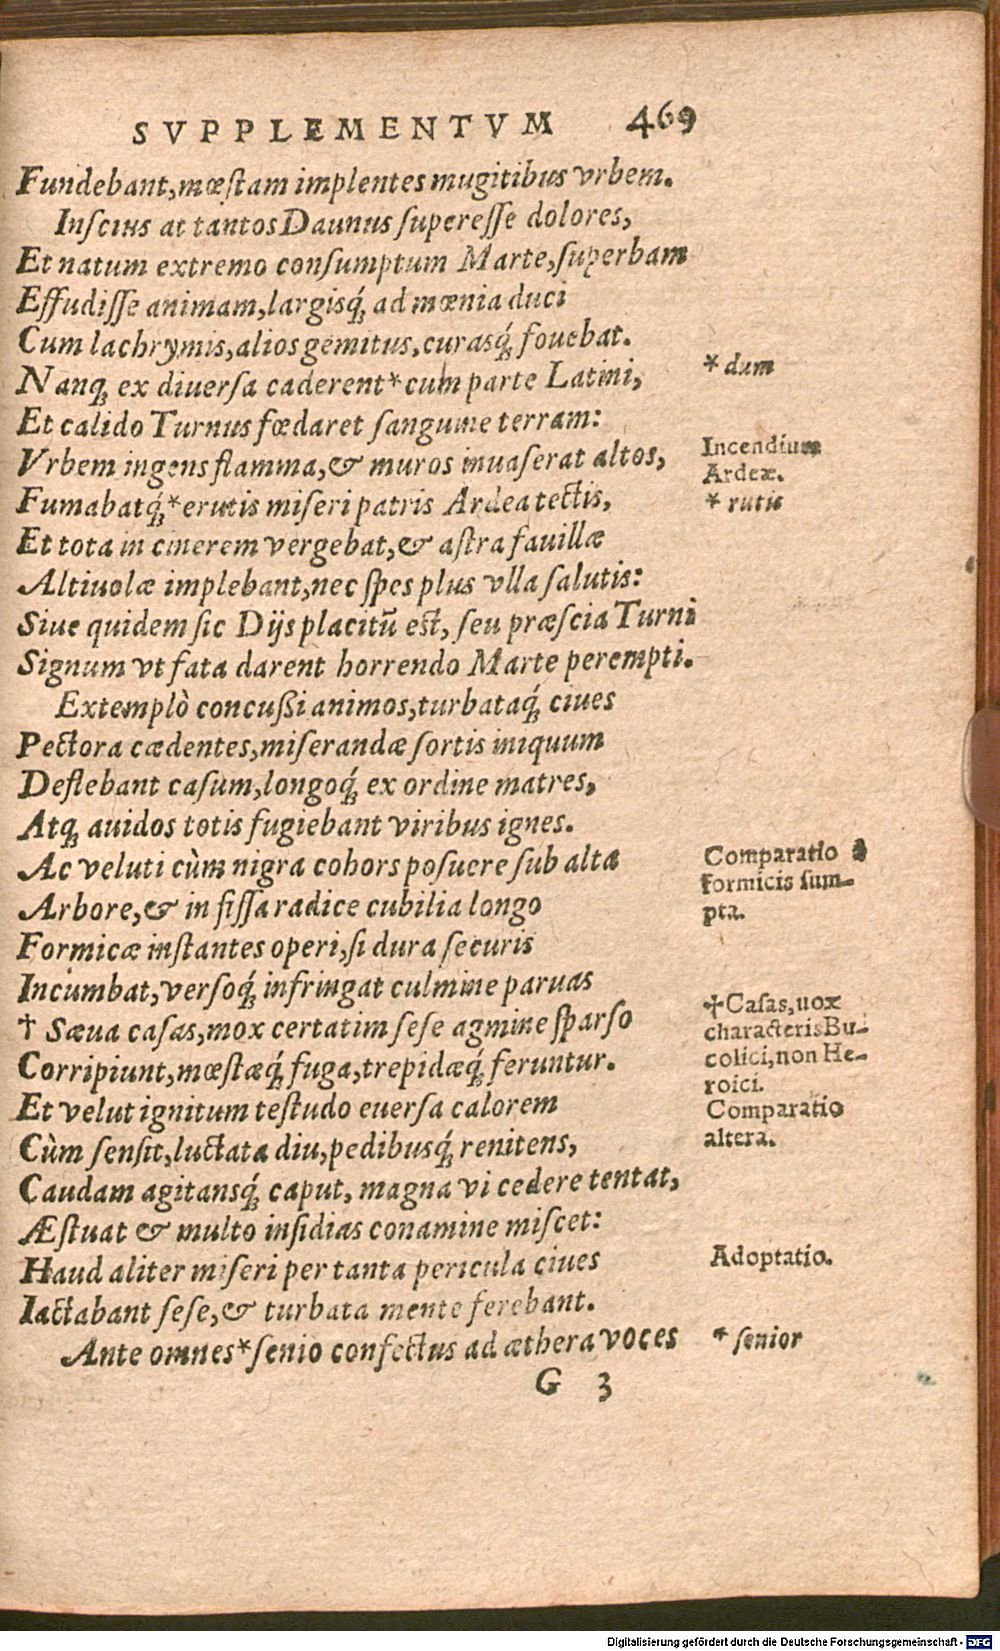 SVPPLEMENTVM 469
Fundebant, mœſtam implentes mugitibus vrbem.
Inſcius at tantos Daunus ſupereſſe dolores,
Et natum extremo conſumptum Marte, ſuperbam
Effudiſſe animam, largisq́; ad mœnia duci
Cum lachrymis, alios gemitus, curasq́; fouebat.
Nanq; ex diuerſa caderent * cum parte Latini, * dum
Et calido Turnus fœdaret ſanguine terram:
Vrbem ingens flamma, & muros inuaſerat altos, Incendium
Ardeæ.
Fumabatq́; * erutis miſeri patris Ardea tectis, * rutis
Et tota in cinerem vergebat, & aſtra fauillæ
Altiuolæ implebant, nec ſpes plus vlla ſalutis:
Siue quidem ſic Dijs placitũ eſt, ſeu præſcia Turni
Signum vt fata darent horrendo Marte perempti.
Extemplò concuſsi animos, turbataq́; ciues
Pectora cædentes, miſerandæ ſortis iniquum
Deflebant caſum, longoq́; ex ordine matres,
Atq; auidos totis fugiebant viribus ignes.
Ac veluti cùm nigra cohors poſuere ſub alta Comparatio à
formicis ſum-
Arbore, & in fiſſa radice cubilia longo pta.
Formicæ inſtantes operi, ſi dura ſecuris
Incumbat, verſoq́; infringat culmine paruas
† Sæua caſas, mox certatim ſeſe agmine ſparſo ✢ Caſas, uox
characteris Bu-
Corripiunt, mœſtæq́; fuga, trepidæq́; feruntur. colici, non He-
roici.
Et velut ignitum teſtudo euerſa calorem Comparatio
Cùm ſenſit, luctata diu, pedibusq́; renitens, altera.
Caudam agitansq́; caput, magna vi cedere tentat,
Æſtuat & multo inſidias conamine miſcet:
Haud aliter miſeri per tanta pericula ciues Adoptatio.
Iactabant ſeſe, & turbata mente ferebant.
Ante omnes * ſenio confectus ad æthera voces * ſenior
G 3
Digitalisierung gefördert durch die Deutsche Forschungsgemeinschaft - DFG